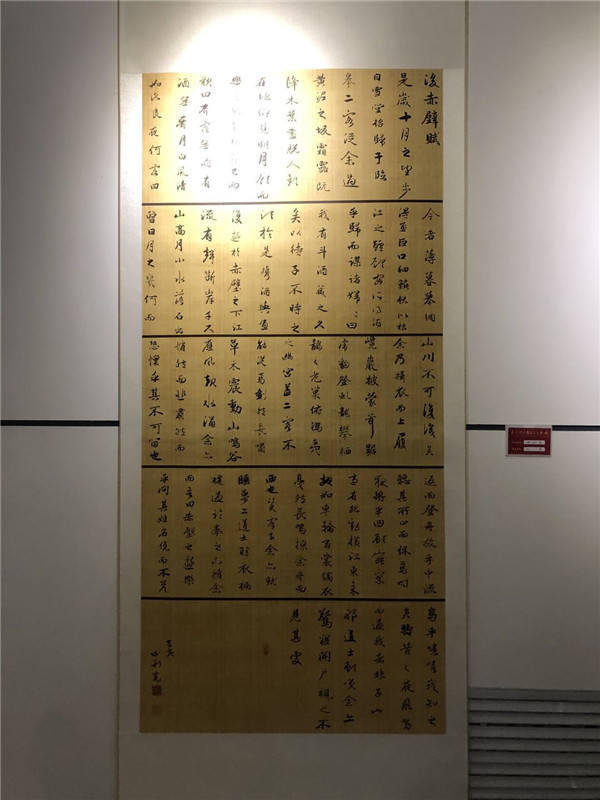 後赤壁賦
是歲十月之望步
自雪堂將歸于臨
皋二客從余過
黃泥之坂霜露既
降木葉盡脫人影
在地仰見明月顧而
樂之行歌相答已而
歎曰有客無酒有
酒無肴月白風清
如此良夜何客曰
今者薄暮舉網
得魚巨口細鱗狀似松
江之鱸顧安所得酒
乎歸而謀諸婦婦曰
我有斗酒藏之久
矣以待子不時之
須於是攜酒與魚
復遊於赤壁之下江
流有聲斷岸千尺
山高月小水落石出
曾日月之幾何而
山川不可復識矣
余乃攝衣而上履
巉巖披蒙茸踞
虎豹登虬龍攀栖
鶻之危巢俯馮夷
之幽宮蓋二客不
能從焉劃然長嘯
草木震動山鳴谷
應風起水涌余亦
悄然而悲肅然而
恐懍乎其不可留也
返而登舟放乎中流
聽其所止而休焉時
夜將半四顧寂寥
適有孤鶴橫江東來
翅如車輪玄裳縞衣
戛然長鳴掠余舟而
西也須臾客去余亦就
睡夢二道士羽衣蹁
躚過臨皋之下揖余
而言曰赤壁之遊樂
乎問其姓名俛而不答
嗚呼噫嘻我知之
矣疇昔之夜飛鳴
而過我者非子也
耶道士顧笑余亦
驚寤開戶視之不
見其處